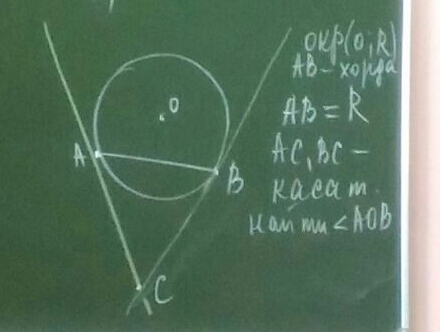 окр(О;R)
AB – хорда
AB = R
AC, BC –
касат.
Найти <AOB
O
A
B
C